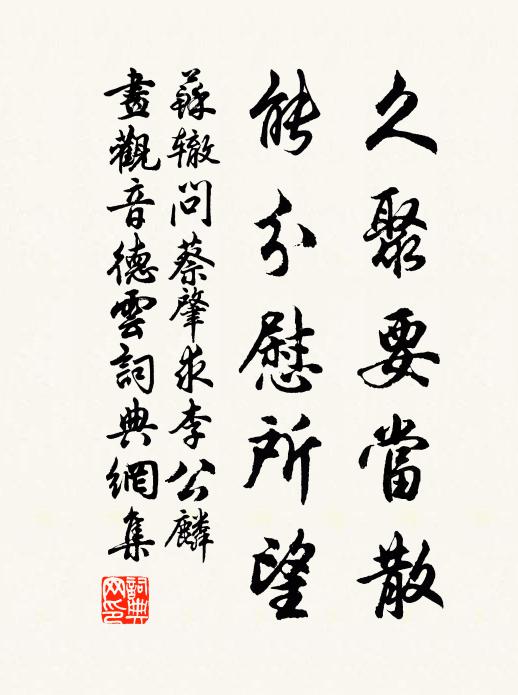 久聚要當散
能分慰所望
蘇轍問蔡肇求李公麟
畫觀音德雲詞典網集
詞典網印